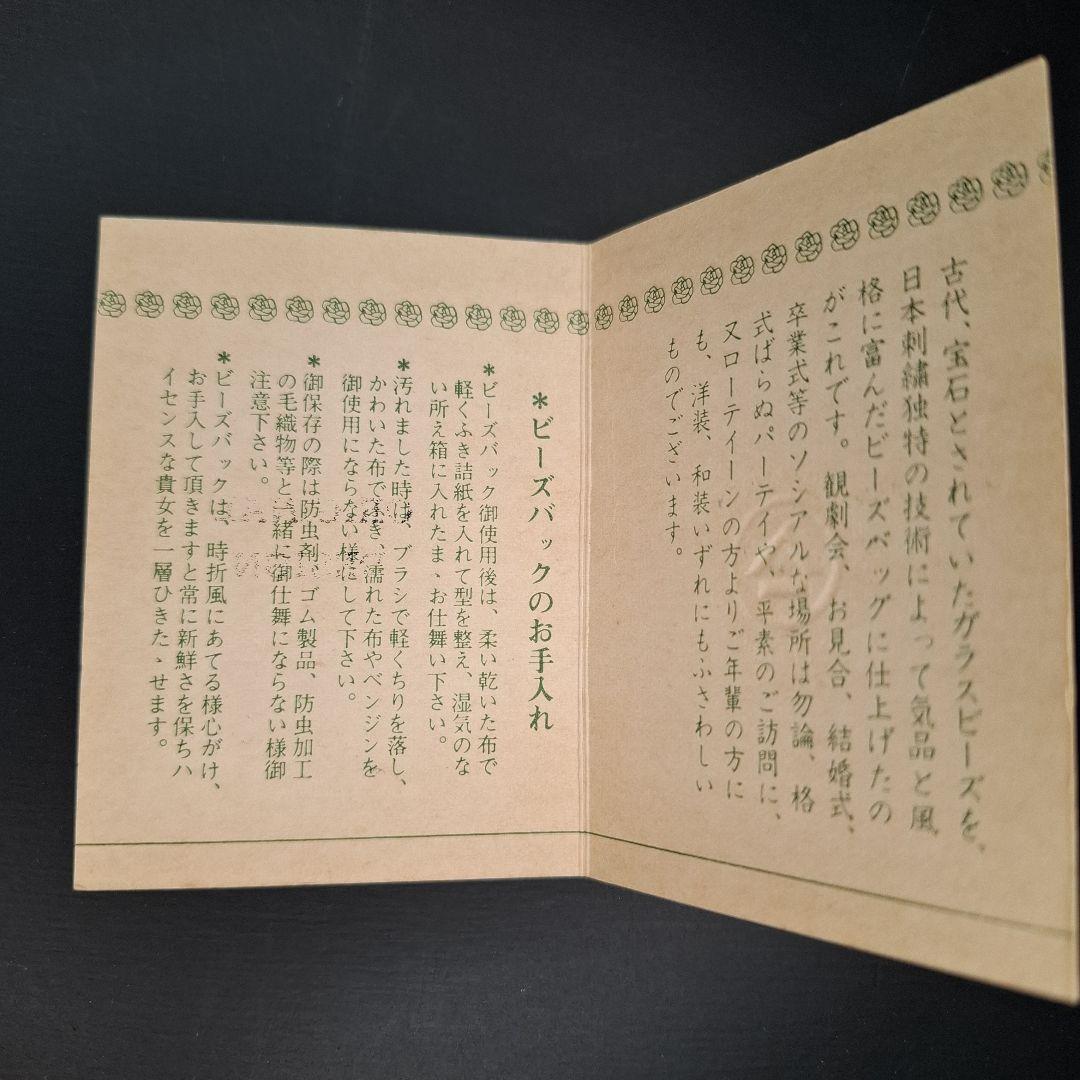 古代、宝石とされていたガラスビーズを、
日本刺繍独特の技術によって気品と風
格に富んだビーズバッグに仕上げたの
がこれです。観劇会、お見合、結婚式、
卒業式等のソシアルな場所は勿論、格
式ばらぬパーテイや、平素のご訪問に、
又ローテイーンの方よりご年輩の方に
も、洋装、和装いずれにもふさわしい
ものでございます。
*ビーズバックのお手入れ
*ビーズバック御使用後は、柔い乾いた布で
軽くふき詰紙を入れて型を整え、湿気のな
い所え箱に入れたまゝお仕舞い下さい。
*汚れました時は、ブラシで軽くちりを落し、
かわいた布でふき、濡れた布やベンジンを
御使用にならない様にして下さい。
*御保存の際は防虫剤、ゴム製品、防虫加工
の毛織物等と一緒に御仕舞にならない様御
注意下さい。
*ビーズバックは、時折風にあてる様心がけ、
お手入して頂きますと常に新鮮さを保ちハ
イセンスな貴女を一層ひきたゝせます。